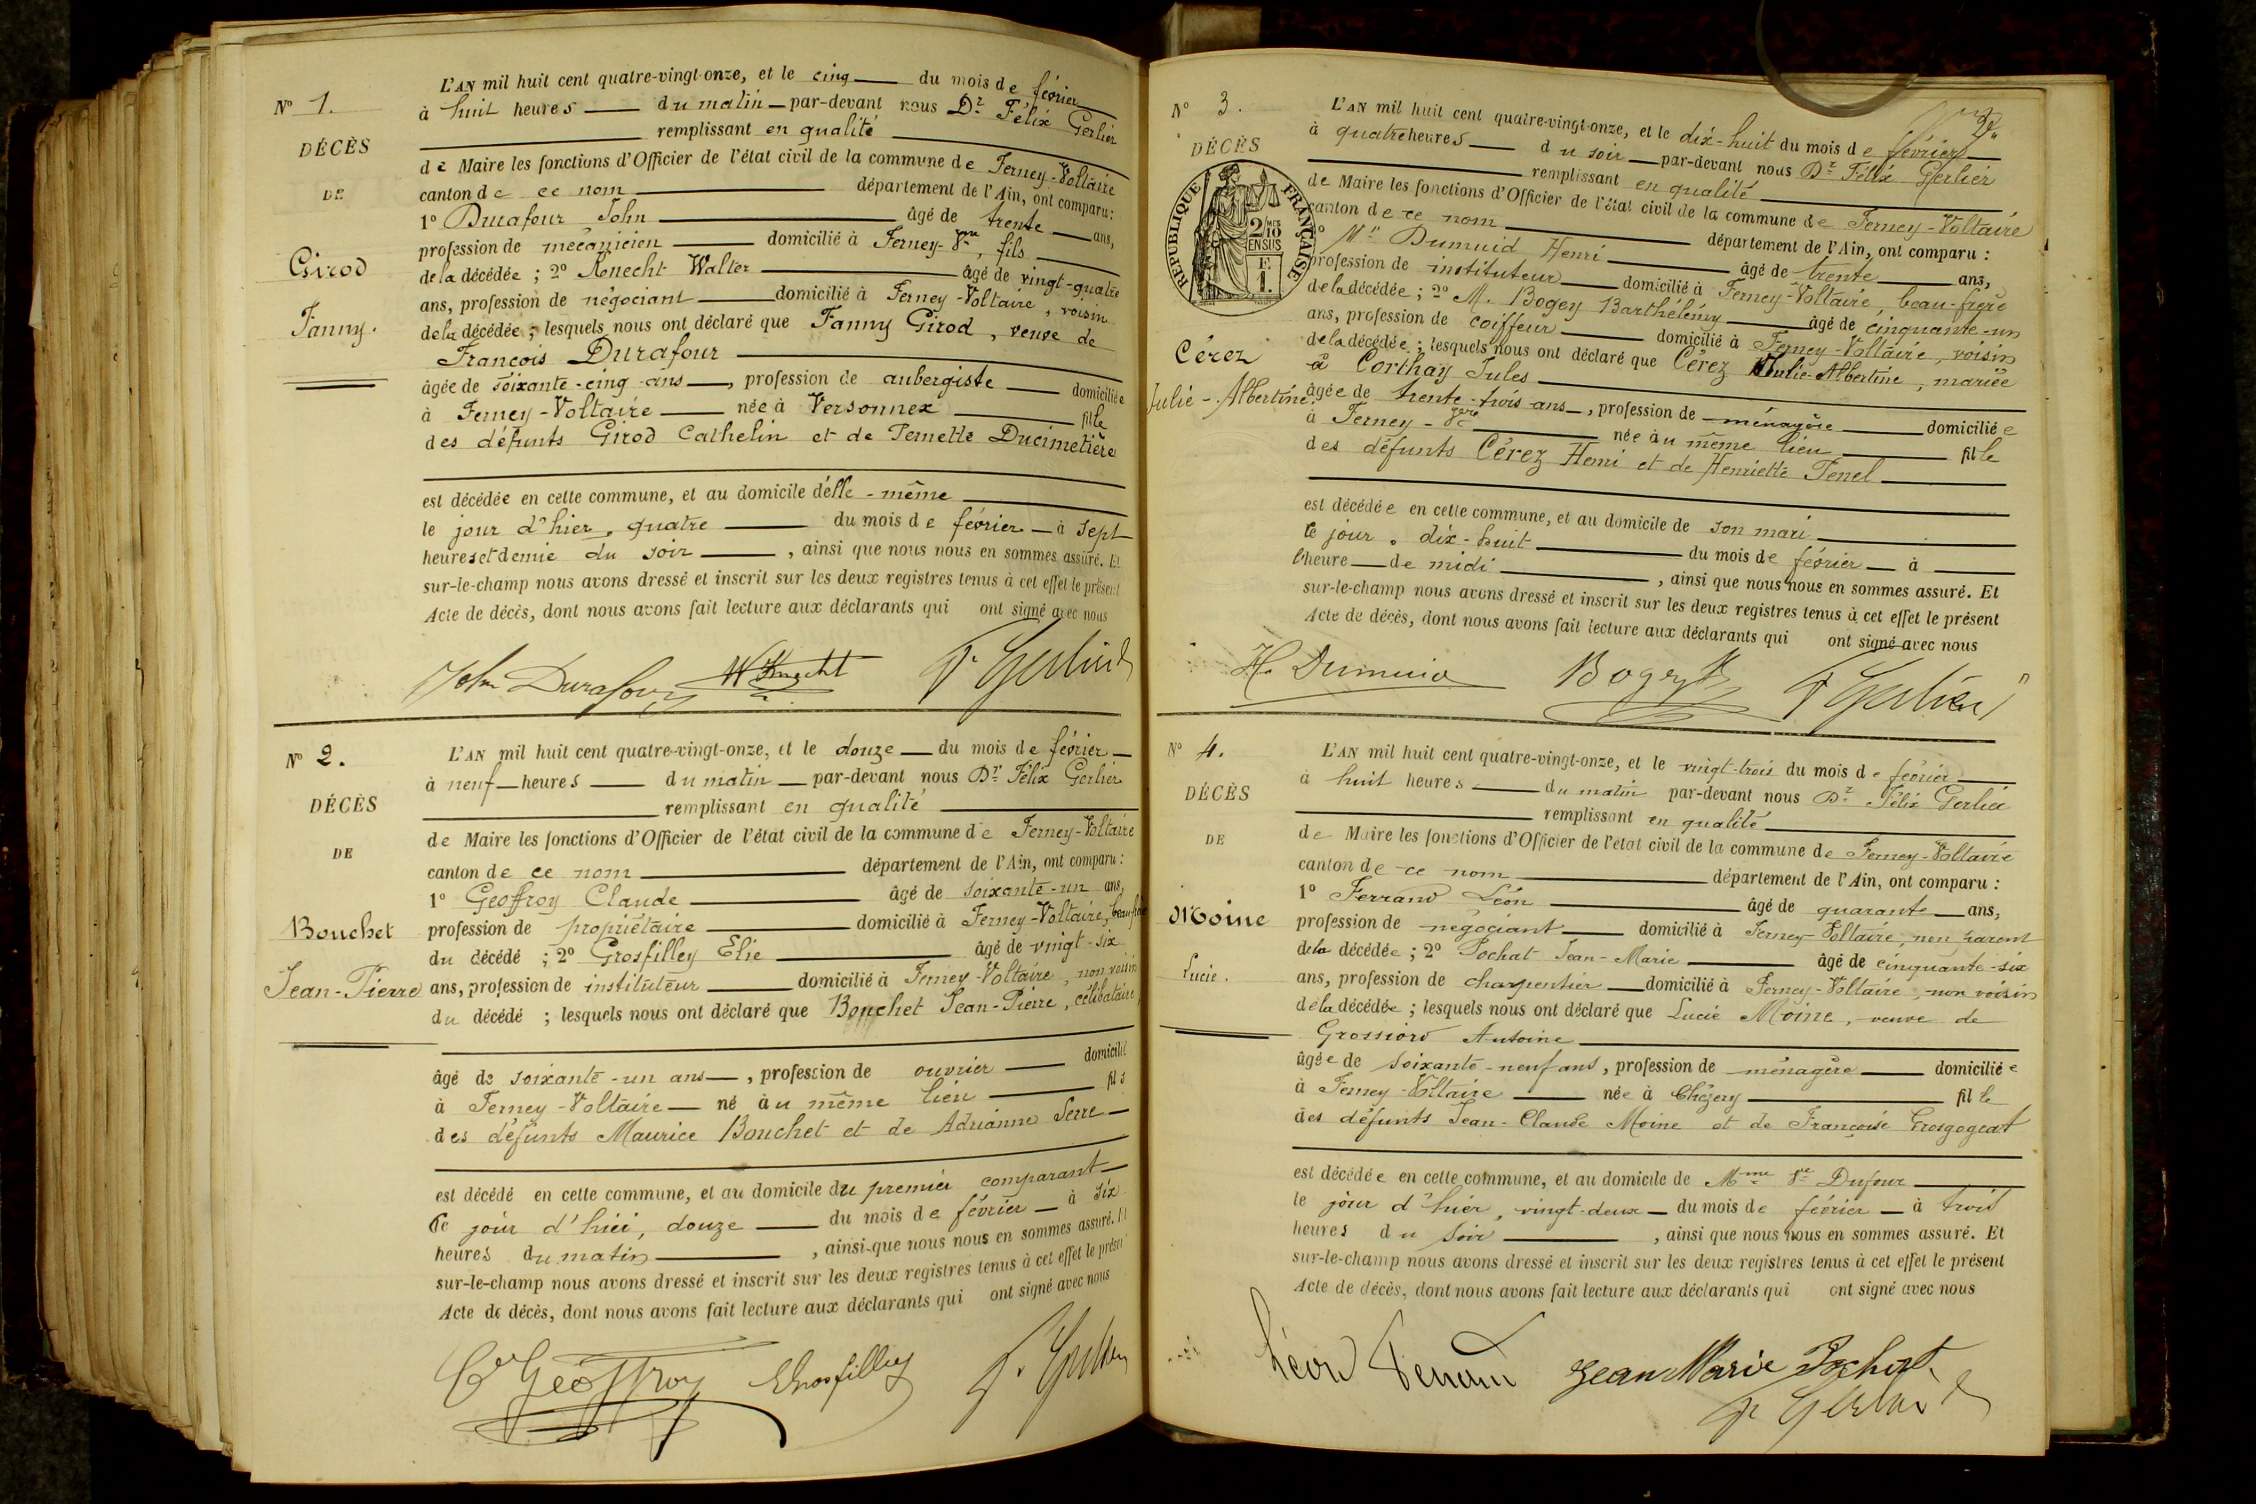 N° 1.
DÉCÈS
DE
Girod
Fanny.
L'AN mil huit cent quatre-vingt-onze, et le cinq du mois de février
à huit heures du matin par-devant nous Dr Félix Gerlier
remplissant en qualité
de Maire les fonctions d'Officier de l'état civil de la commune de Ferney-Voltaire
canton de ce nom département de l'Ain, ont comparu :
1° Durafour John âgé de trente ans,
profession de mécanicien domicilié à Ferney-Vre, fils
de la décédée ; 2° Knecht Walter âgé de vingt-quatre
ans, profession de négociant domicilié à Ferney-Voltaire, voisin
de la décédée ; lesquels nous ont déclaré que Fanny Girod, veuve de
François Durafour
âgée de soixante-cinq ans, profession de aubergiste domiciliée
à Ferney-Voltaire née à Versonnex fille
des défunts Girod Cathelin et de Pernette Ducimetière
est décédée en cette commune, et au domicile d'elle-même
le jour d'hier, quatre du mois de février à sept
heures et demie du soir, ainsi que nous nous en sommes assuré. Et
sur-le-champ nous avons dressé et inscrit sur les deux registres tenus à cet effet le présent
Acte de décès, dont nous avons fait lecture aux déclarants qui ont signé avec nous
John Durafour W Knecht F. Gerlier
N° 2.
DÉCÈS
DE
Bouchet
Jean-Pierre
L'AN mil huit cent quatre-vingt-onze, et le douze du mois de février
à neuf heures du matin par-devant nous Dr Félix Gerlier
remplissant en qualité
de Maire les fonctions d'Officier de l'état civil de la commune de Ferney-Voltaire
canton de ce nom département de l'Ain, ont comparu :
1° Geoffroy Claude âgé de soixante-un ans,
profession de propriétaire domicilié à Ferney-Voltaire, beau-frère
du décédé ; 2° Grosfilley Elie âgé de vingt-six
ans, profession de instituteur domicilié à Ferney-Voltaire, non voisin
du décédé ; lesquels nous ont déclaré que Bouchet Jean-Pierre, célibataire,
âgé de soixante-un ans, profession de ouvrier domicilié
à Ferney-Voltaire né au même lieu fils
des défunts Maurice Bouchet et de Adrianne Serre
est décédé en cette commune, et au domicile du premier comparant
le jour d'hier, douze du mois de février à six
heures du matin, ainsi que nous nous en sommes assuré. Et
sur-le-champ nous avons dressé et inscrit sur les deux registres tenus à cet effet le présent
Acte de décès, dont nous avons fait lecture aux déclarants qui ont signé avec nous
Cde Geoffroy EGrosfilley F. Gerlier
N° 3.
DÉCÈS
RÉPUBLIQUE FRANÇAISE
2/10
EN SUS
F.
1.
Cérez
Julie-Albertine
L'AN mil huit cent quatre-vingt-onze, et le dix-huit du mois de février
à quatre heures du soir par-devant nous Dr Félix Gerlier
remplissant en qualité
de Maire les fonctions d'Officier de l'état civil de la commune de Ferney-Voltaire
canton de ce nom département de l'Ain, ont comparu :
1° Mr Dumuid Henri âgé de trente ans,
profession de instituteur domicilié à Ferney-Voltaire, beau-frère
de la décédée ; 2° M. Bogey Barthélémy âgé de cinquante-un
ans, profession de coiffeur domicilié à Ferney-Voltaire, voisin
de la décédée ; lesquels nous ont déclaré que Cérez Julie-Albertine, mariée
à Corthay Jules
âgée de trente-trois ans, profession de ménagère domiciliée
à Ferney-Vre née au même lieu fille
des défunts Cérez Henri et de Henriette Penel
est décédée en cette commune, et au domicile de son mari
le jour, dix-huit du mois de février à
l'heure de midi, ainsi que nous nous en sommes assuré. Et
sur-le-champ nous avons dressé et inscrit sur les deux registres tenus à cet effet le présent
Acte de décès, dont nous avons fait lecture aux déclarants qui ont signé avec nous
H. Dumuid Bogey F Gerlier
N° 4.
DÉCÈS
DE
Moine
Lucie.
L'AN mil huit cent quatre-vingt-onze, et le vingt-trois du mois de février
à huit heures du matin par-devant nous Dr Félix Gerlier
remplissant en qualité
de Maire les fonctions d'Officier de l'état civil de la commune de Ferney-Voltaire
canton de ce nom département de l'Ain, ont comparu :
1° Ferrand Léon âgé de quarante ans,
profession de négociant domicilié à Ferney-Voltaire, non parent
de la décédée ; 2° Pochat Jean-Marie âgé de cinquante-six
ans, profession de charpentier domicilié à Ferney-Voltaire, non voisin
de la décédée ; lesquels nous ont déclaré que Lucie Moine, veuve de
Grossiord Antoine
âgée de soixante-neuf ans, profession de ménagère domiciliée
à Ferney-Voltaire née à Chézery fille
des défunts Jean-Claude Moine et de Françoise Grosgogeat
est décédée en cette commune, et au domicile de Mme Ve Dufour
le jour d'hier, vingt-deux du mois de février à trois
heures du soir, ainsi que nous nous en sommes assuré. Et
sur-le-champ nous avons dressé et inscrit sur les deux registres tenus à cet effet le présent
Acte de décès, dont nous avons fait lecture aux déclarants qui ont signé avec nous
Léon Ferrand Jean Marie Pochat
F Gerlier